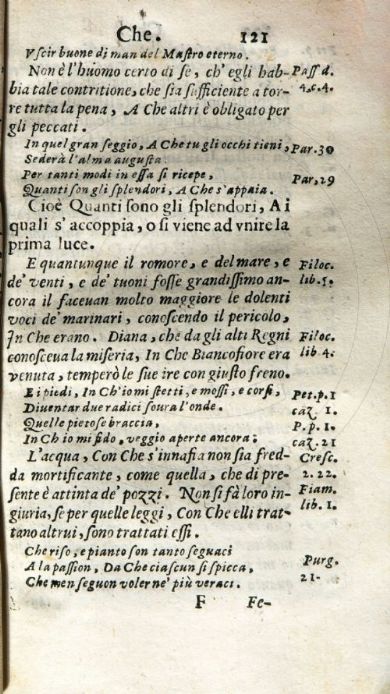 Che. 121
Vscir buone di man del Mastro eterno.
Non è l'huomo certo di se, ch'egli hab- Pass' d.
bia tale contritione, che sia sufficiente a tor- 4.c.4.
re tutta la pena, A Che altri è obligato per
gli peccati.
In quel gran seggio, A Che tu gli occhi tieni, Par. 30
Sederà l'alma augusta
Per tanti modi in essa si ricepe, Par, 29
Quanti son gli splendori, A Che s'appaia.
Cioè Quanti sono gli splendori, A i
quali s'accoppia, o si viene ad vnire la
prima luce.
E quantunque il romore, e del mare, e Filoc.
de' venti, e de' tuoni fosse grandissimo an- lib. 5.
cora il faceuan molto maggiore le dolenti
voci de' marinari, conoscendo il pericolo,
In Che erano. Diana, che da gli alti Regni Filoc.
conosceua la miseria, In Che Biancofiore era lib 4.
venuta, temperò le sue ire con giusto freno.
E i piedi, In Ch'io mi stetti, e mossi, e corsi, Pet. p. 1
Diuentar due radici soura l'onde. caz. 1.
Quelle pietose braccia, P. p. 1.
In Ch io mi fido, veggio aperte ancora; caz. 21
L'acqua, Con Che s'innafia non sia fred- Cresc.
da mortificante, come quella, che di pre- 2. 22.
sente è attinta de' pozzi. Non si fà loro in- Fiam.
giuria, se per quelle leggi, Con Che elli trat- lib. 1.
tano altrui, sono trattati essi.
Che riso, e pianto son tanto seguaci
A la passion, Da Che ciascun si spicca, Purg.
Che men seguon voler ne' più veraci. 21.
F Fe-